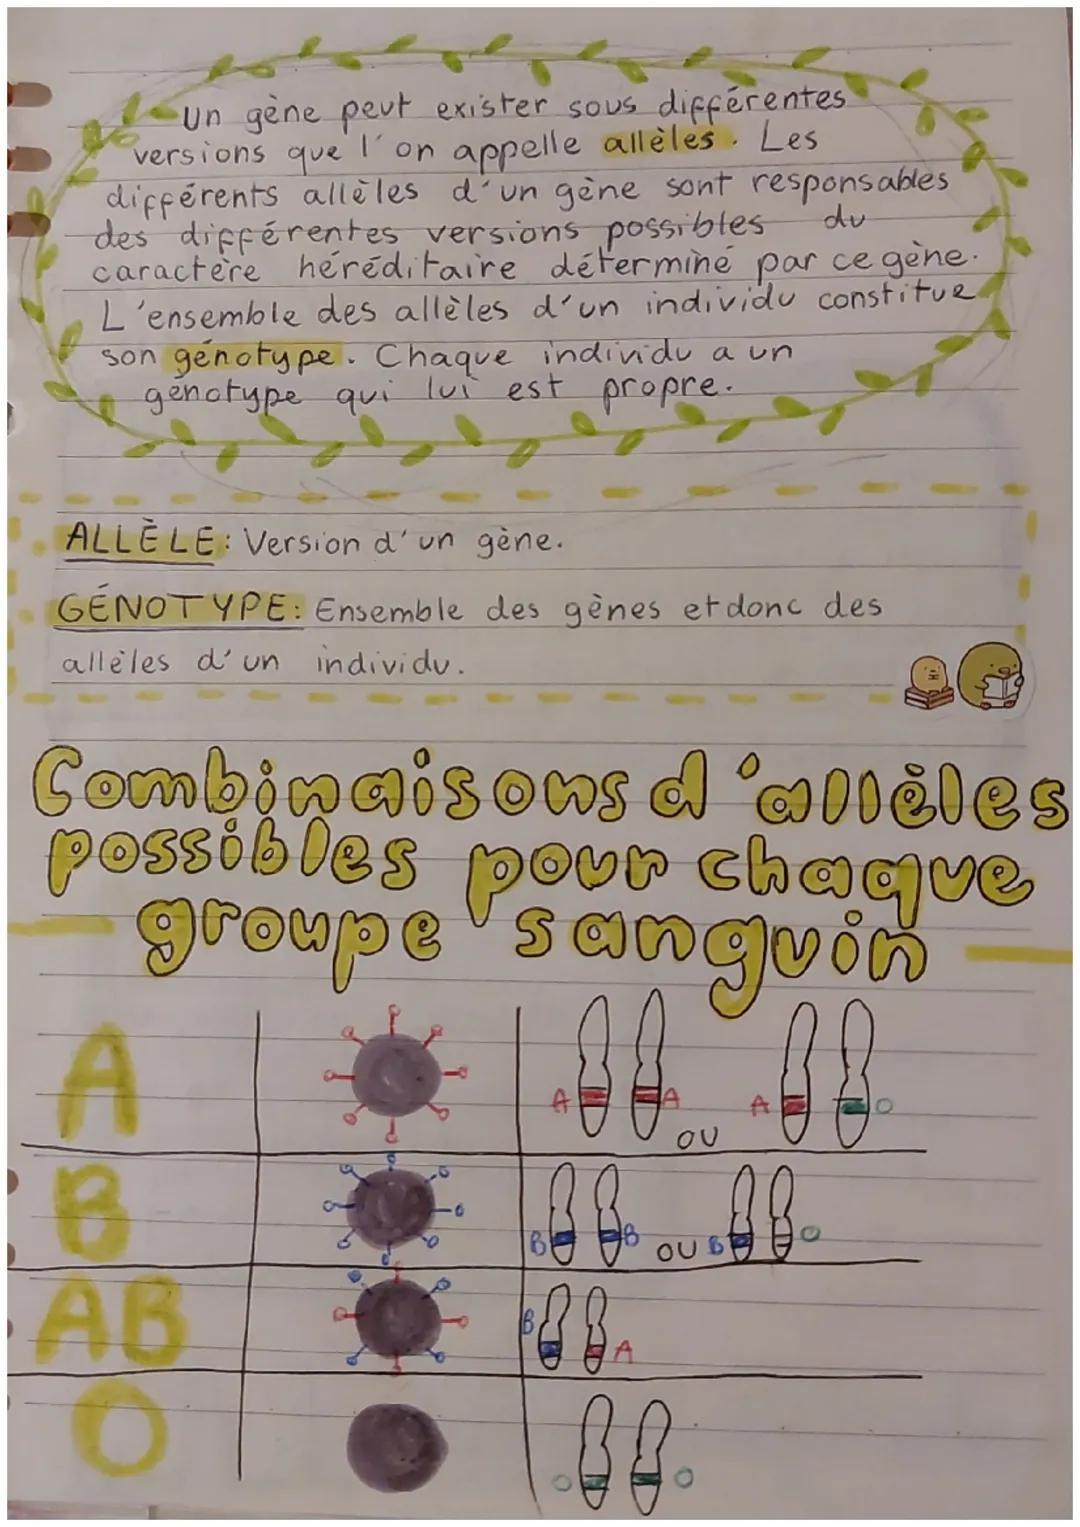 Un gène peut exister sous différentes
versions que l'on appelle allèles. Les
différents allèles d'un gène sont responsables
des différentes versions possibles du
caractère héréditaire déterminé par ce gène.
L'ensemble des allèles d'un individu constitue
son génotype. Chaque individu a un
génotype qui lui est propre.
ALLÈLE: Version d'un gène.
GÉNOTYPE: Ensemble des gènes et donc des
allèles d'un individu.
Combinaisons d'allèles
possibles pour chaque
groupe sanguin
A
A A OU A O
B
B B OU B O
AB
B A
O
O O